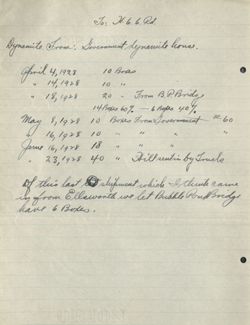 To: H & G Rd.
Dynamite From: Government dynamite house.
April 4, 1928 10 Boxes
" 14, 1928 10 "
" 18, 1928 20 " From B.P. Bridge
14 Boxes 60% - 6 Boxes 40%
May 8, 1928 10 Boxes From Government #60
" 16, 1928 10 " " "
June 16, 1928 18 " " "
" 23, 1928 40 " by Trucks
Of this last shipment which I think came
by from Ellsworth we let Bubble Pond Bridge
have 6 Boxes.